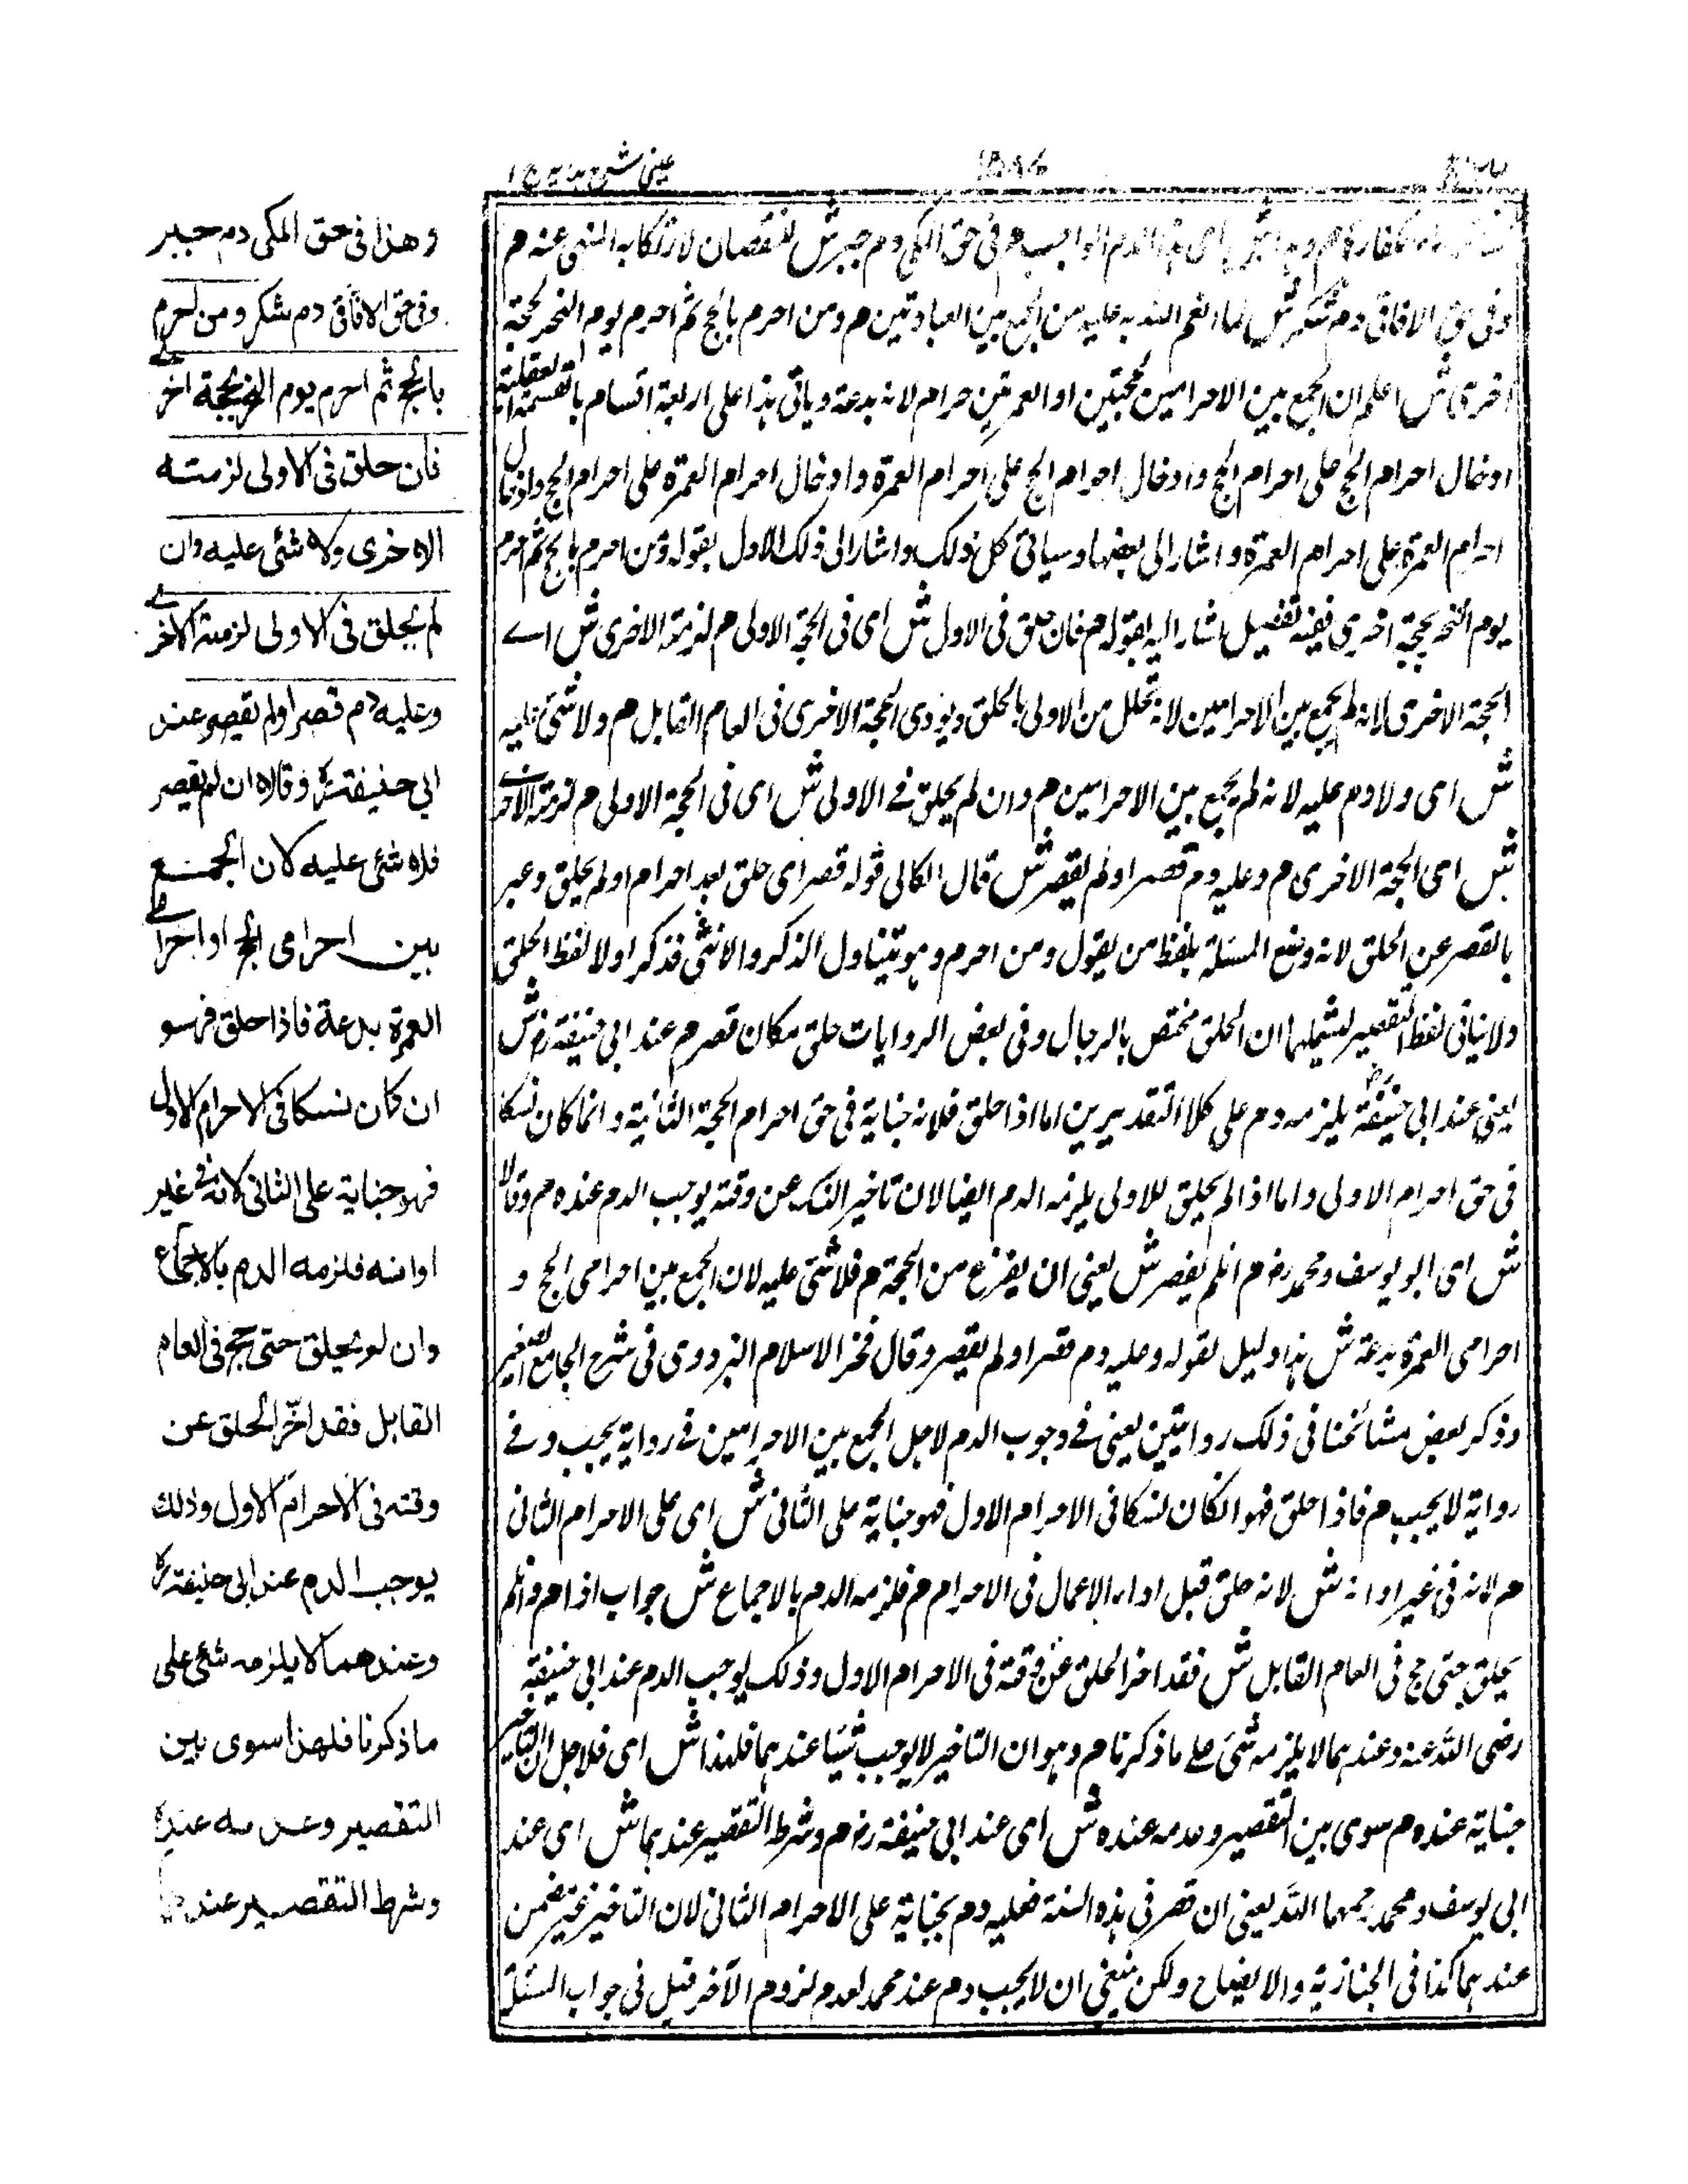 عینی شرح هدایه ج ۱
كفارة م وهذا ش اى هذا الدم الواجب م فى حق المكى دم جبر ش لنقصان لارتكابه المنهى عنه م
وفى حق الافاقى دم شكر ش لما انعم الله به عليه من الجمع بين العبادتين م ومن احرم بالحج ثم احرم يوم النحر بحجة
اخرى ش اعلم ان الجمع بين الاحرامين لحجتين او العمرتين حرام لانه بدعة وياتى هذا على اربعة اقسام بالقسمة العقلية
ادخال احرام الحج على احرام الحج وادخال احرام الحج على احرام العمرة وادخال احرام العمرة على احرام الحج وادخال
احرام العمرة على احرام العمرة واشار الى بعضها وسياتى كل ذلك واشار الى ذلك الاول بقوله ومن احرم بالحج ثم احرم
يوم النحر بحجة اخرى ففيه تفصيل اشار اليه بقوله م فان حلق فى الاول ش اى فى الحجة الاولى م لزمته الاخرى ش اے
الحجة الاخرى لانه لم يجمع بين الاحرامين لانه تحلل من الاولى بالحلق ويؤدى الحجة الاخرى فى العام القابل م ولا شئ عليه
ش اى ولا دم عليه لانه لم يجمع بين الاحرامين م وان لم يحلق فے الاولى ش اى فى الحجة الاولى م لزمته الاخرے
ش اى الحجة الاخرى م وعليه دم قصر او لم يقصر ش قال الكاكى قوله قصر اى حلق بعد احرام او لم يحلق وعبر
بالقصر عن الحلق لانه وضع المسئلة بلفظ من يقول ومن احرم وهو يتناول الذكر والانثى فذكر اولا لفظ الحلق
ولا ينافى لفظ التقصير ليشملها ان الحلق مختص بالرجال وفى بعض الروايات حلق مكان قصر م عند ابى حنيفة رض ش
يعنى عند ابى حنيفة يلزمه دم على كلا التقديرين اما اذا حلق فلانه جناية فى حق احرام الحجة الثانية وانما كان نسكا
فى حق احرام الاولى واما اذا لم يحلق للاولى يلزمه الدم ايضا لان تاخير النسك عن وقته يوجب الدم عنده م وقالا
ش اى ابو يوسف ومحمد رض م ان لم يقصر ش يعنى ان يفرغ من الحجة م فلا شئ عليه لان الجمع بين احرامى الحج و
احرامى العمرة بدعة ش هذا دليل لقوله وعليه دم قصر او لم يقصر وقال فخر الاسلام البزدوى فى شرح الجامع الصغير
وذكر بعض مشائخنا فى ذلك روايتين يعنى فے وجوب الدم لاجل الجمع بين الاحرامين فے رواية يجب وفے
رواية لا يجب م فاذا حلق فهو انكان نسكا فى الاحرام الاول فهو جناية على الثانى ش اى على الاحرام الثانى
م لانه فى غير اوانه ش لانه حلق قبل اداء الاعمال فى الاحرام م فلزمه الدم بالاجماع ش جواب اذا م وان لم
يحلق حتى حج فى العام القابل ش فقد اخر الحلق عن وقته فى الاحرام الاول وذلك يوجب الدم عند ابى حنيفة
رضى الله عنه وعندهما لا يلزمه شئ علے ما ذكرنا م وهو ان التاخير لا يوجب شيئا عندهما فلهذا ش اى فلاجل ان التاخير
جناية عنده م سوى بين التقصير وعدمه عنده ش اى عند ابى حنيفة رض م وشرط التقصير عندهما ش اى عند
ابى يوسف ومحمد رحمهما الله يعنى ان قصر فى هذه السنة فعليه دم بجناية على الاحرام الثانى لان التاخير غير مضمن
عندهما كذا فى الجنازية والايضاح ولكن ينبغى ان لا يجب دم عند محمد لعدم لزوم الآخر قيل فى جواب المسئلة
وهذا فى حق المكى دم جبر
وفى حق الافاقى دم شكر ومن احرم
بالحج ثم احرم يوم النحر بحجة اخرے
فان حلق فى الاولى لزمته
الاخرى ولا شئى عليه وان
لم يحلق فى الاولى لزمته الاخرے
وعليه دم قصر او لم يقصر عند
ابى حنيفة رح وقالا ان لم يقصر
فلا شئ عليه لان الجمع
بين احرامى الحج او احرامے
العمرة بدعة فاذا حلق فهو
ان كان نسكا فى الاحرام الاولى
فهو جناية على الثانى لانه فے غير
اوانه فلزمه الدم بالاجماع
وان لم يحلق حتى حج فى العام
القابل فقد اخّر الحلق عن
وقته فى الاحرام الاول وذلك
يوجب الدم عند ابى حنيفة رح
وعندهما لا يلزمه شئ على
ما ذكرنا فلهذا سوى بين
التقصير وعدمه عنده
وشرط التقصير عندهما